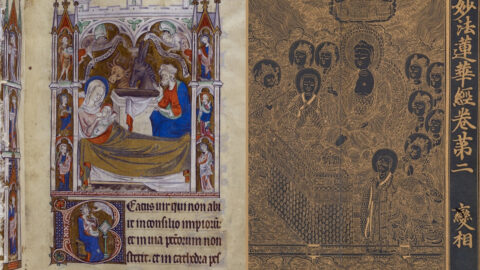 Beatus uir qui non abi
it in consilio impiorū
et in uia peccorum non
stetit. et in cathedra pes
妙法蓮華經卷第二 變相